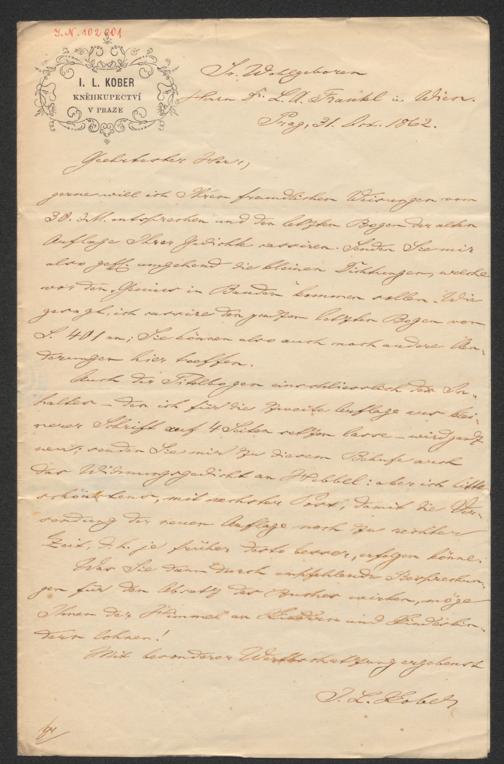 J.N. 102901
I. L. KOBER
KNĚHKUPECTVÍ
V PRAZE
Sr. Wohlgeboren
Herrn Dr. L. A. Frankl in Wien.
Prag, 31. Oct. 1862.
Geehrtester Herr,
gerne will ich Ihren freundlichen Weisungen vom
30. d.M. entsprechen und den letzten Bogen der alten
Auflage Ihrer Gedichte cassiren. Senden Sie mir
also gefl. umgehend die kleinen Dichtungen, welche
vor den "Genius in Banden" kommen sollen. Wie
gesagt, ich cassire den ganzen letzten Bogen von
S. 401 an; Sie können also auch noch andere Än-
derungen hier treffen.
Auch der Titelbogen einschliesslich des In-
haltes – den ich für die zweite Auflage aus klei-
nerer Schrift auf 4 Seiten setzen lasse – wird ganz
neu; senden Sie mir zu diesem Behufe auch
das Widmungsgedicht an Hebbel: aber ich bitte
schönstens, mit nächster Post, damit die Ver-
sendung der neuen Auflage noch zu rechter
Zeit, d.h. je früher desto besser, erfolgen könne.
Was Sie dann durch empfehlende Besprechun-
gen für den Absatz des Buches wirken, möge
Ihnen der Himmel an Kindern und Kindeskin-
dern lohnen!
Mit besonderer Werthschätzung ergebenst
I. L. Kober